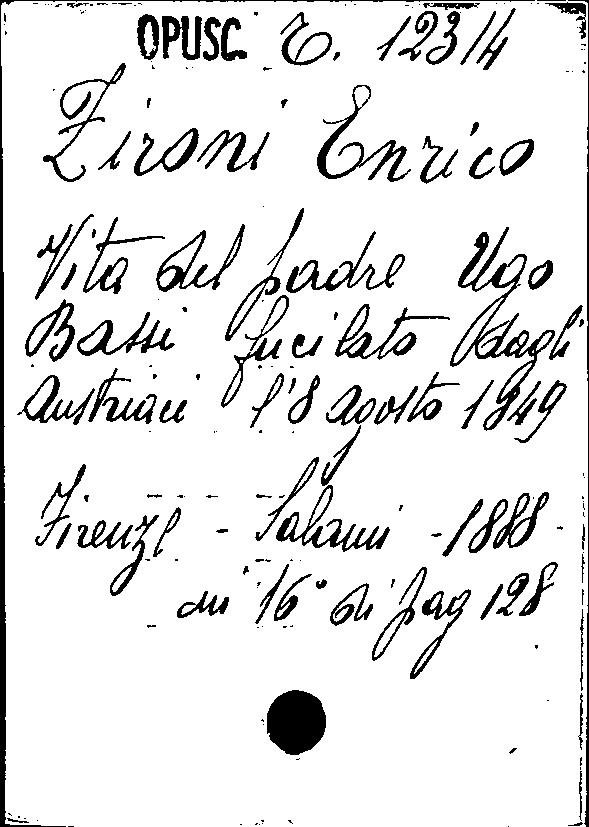 OPUSC. C. 123/4
Zironi Enrico
Vita del padre Ugo
Bassi fucilato dagli
Austriaci l'8 agosto 1849
Firenze - Salani - 1888 -
in 16° di pag 128